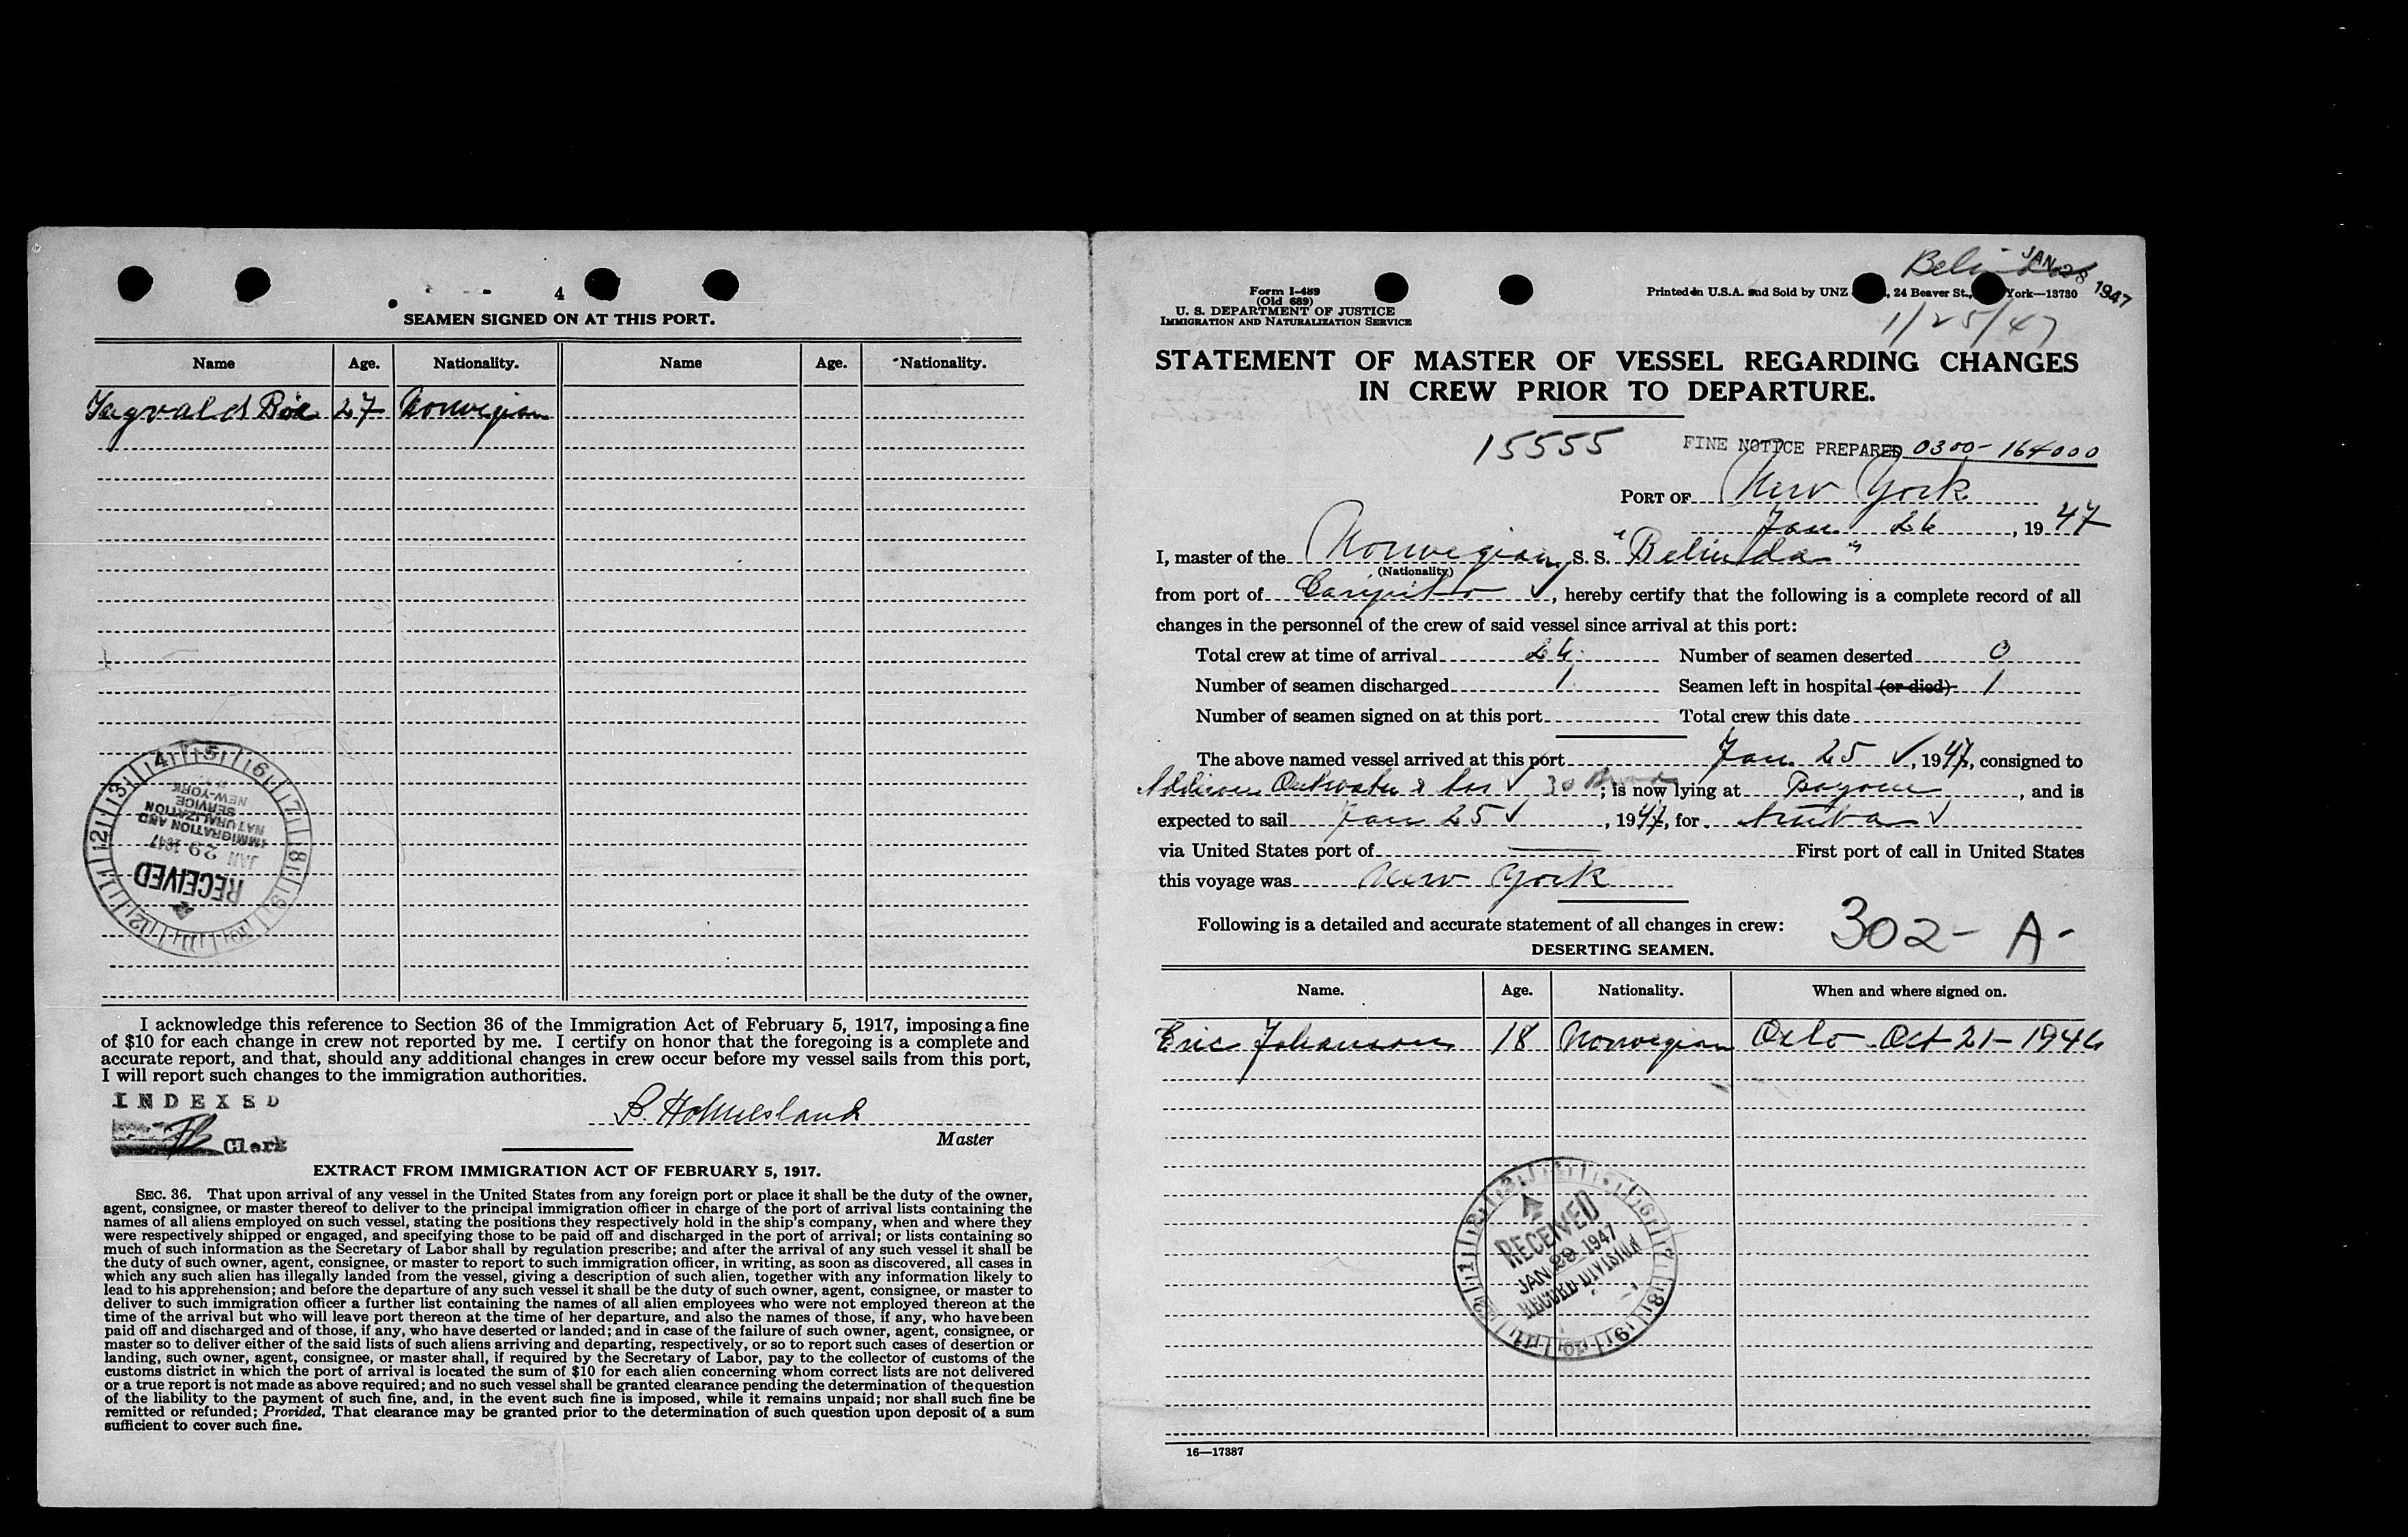 4
SEAMEN SIGNED ON AT THIS PORT.
Name Age. Nationality. Name Age. Nationality.
Yngvald Bøe 27 Norwegian
RECEIVED
JAN 29 1947
IMMIGRATION AND
NATURALIZATION
SERVICE
NEW-YORK
I acknowledge this reference to Section 36 of the Immigration Act of February 5, 1917, imposing a fine
of $10 for each change in crew not reported by me. I certify on honor that the foregoing is a complete and
accurate report, and that, should any additional changes in crew occur before my vessel sails from this port,
I will report such changes to the immigration authorities.
INDEXED
Clerk
B. Holmesland
Master
EXTRACT FROM IMMIGRATION ACT OF FEBRUARY 5, 1917.
SEC. 36. That upon arrival of any vessel in the United States from any foreign port or place it shall be the duty of the owner,
agent, consignee, or master thereof to deliver to the principal immigration officer in charge of the port of arrival lists containing the
names of all aliens employed on such vessel, stating the positions they respectively hold in the ship's company, when and where they
were respectively shipped or engaged, and specifying those to be paid off and discharged in the port of arrival; or lists containing so
much of such information as the Secretary of Labor shall by regulation prescribe; and after the arrival of any such vessel it shall be
the duty of such owner, agent, consignee, or master to report to such immigration officer, in writing, as soon as discovered, all cases in
which any such alien has illegally landed from the vessel, giving a description of such alien, together with any information likely to
lead to his apprehension; and before the departure of any such vessel it shall be the duty of such owner, agent, consignee, or master to
deliver to such immigration officer a further list containing the names of all alien employees who were not employed thereon at the
time of the arrival but who will leave port thereon at the time of her departure, and also the names of those, if any, who have been
paid off and discharged and of those, if any, who have deserted or landed; and in case of the failure of such owner, agent, consignee, or
master so to deliver either of the said lists of such aliens arriving and departing, respectively, or so to report such cases of desertion or
landing, such owner, agent, consignee, or master shall, if required by the Secretary of Labor, pay to the collector of customs of the
customs district in which the port of arrival is located the sum of $10 for each alien concerning whom correct lists are not delivered
or a true report is not made as above required; and no such vessel shall be granted clearance pending the determination of the question
of the liability to the payment of such fine, and, in the event such fine is imposed, while it remains unpaid; nor shall such fine be
remitted or refunded; Provided, That clearance may be granted prior to the determination of such question upon deposit of a sum
sufficient to cover such fine.
JAN 28 1947
1/25/47
Form I-489
(Old 689)
U. S. DEPARTMENT OF JUSTICE
IMMIGRATION AND NATURALIZATION SERVICE
Printed in U.S.A. and Sold by UNZ , 24 Beaver St., York—13730
STATEMENT OF MASTER OF VESSEL REGARDING CHANGES
IN CREW PRIOR TO DEPARTURE.
15555 FINE NOTICE PREPARED 0300-164000
PORT OF New York
Jan 26, 1947
I, master of the Norwegian S. S. "Belinda"
(Nationality)
from port of Caripito ✓, hereby certify that the following is a complete record of all
changes in the personnel of the crew of said vessel since arrival at this port:
Total crew at time of arrival 26 Number of seamen deserted 0
Number of seamen discharged 1 Seamen left in hospital (or died) 1
Number of seamen signed on at this port Total crew this date
The above named vessel arrived at this port Jan 25 ✓, 1947, consigned to
✓ 30 ; is now lying at Bayonne, and is
expected to sail Jan 25 ✓, 1947, for Aruba ✓
via United States port of — First port of call in United States
this voyage was New York
Following is a detailed and accurate statement of all changes in crew: 302- A-
DESERTING SEAMEN.
Name. Age. Nationality. When and where signed on.
Eric Johansson 18 Norwegian Oslo Oct 21-1946
RECEIVED
JAN 29 1947
RECORD DIVISION
16—17387